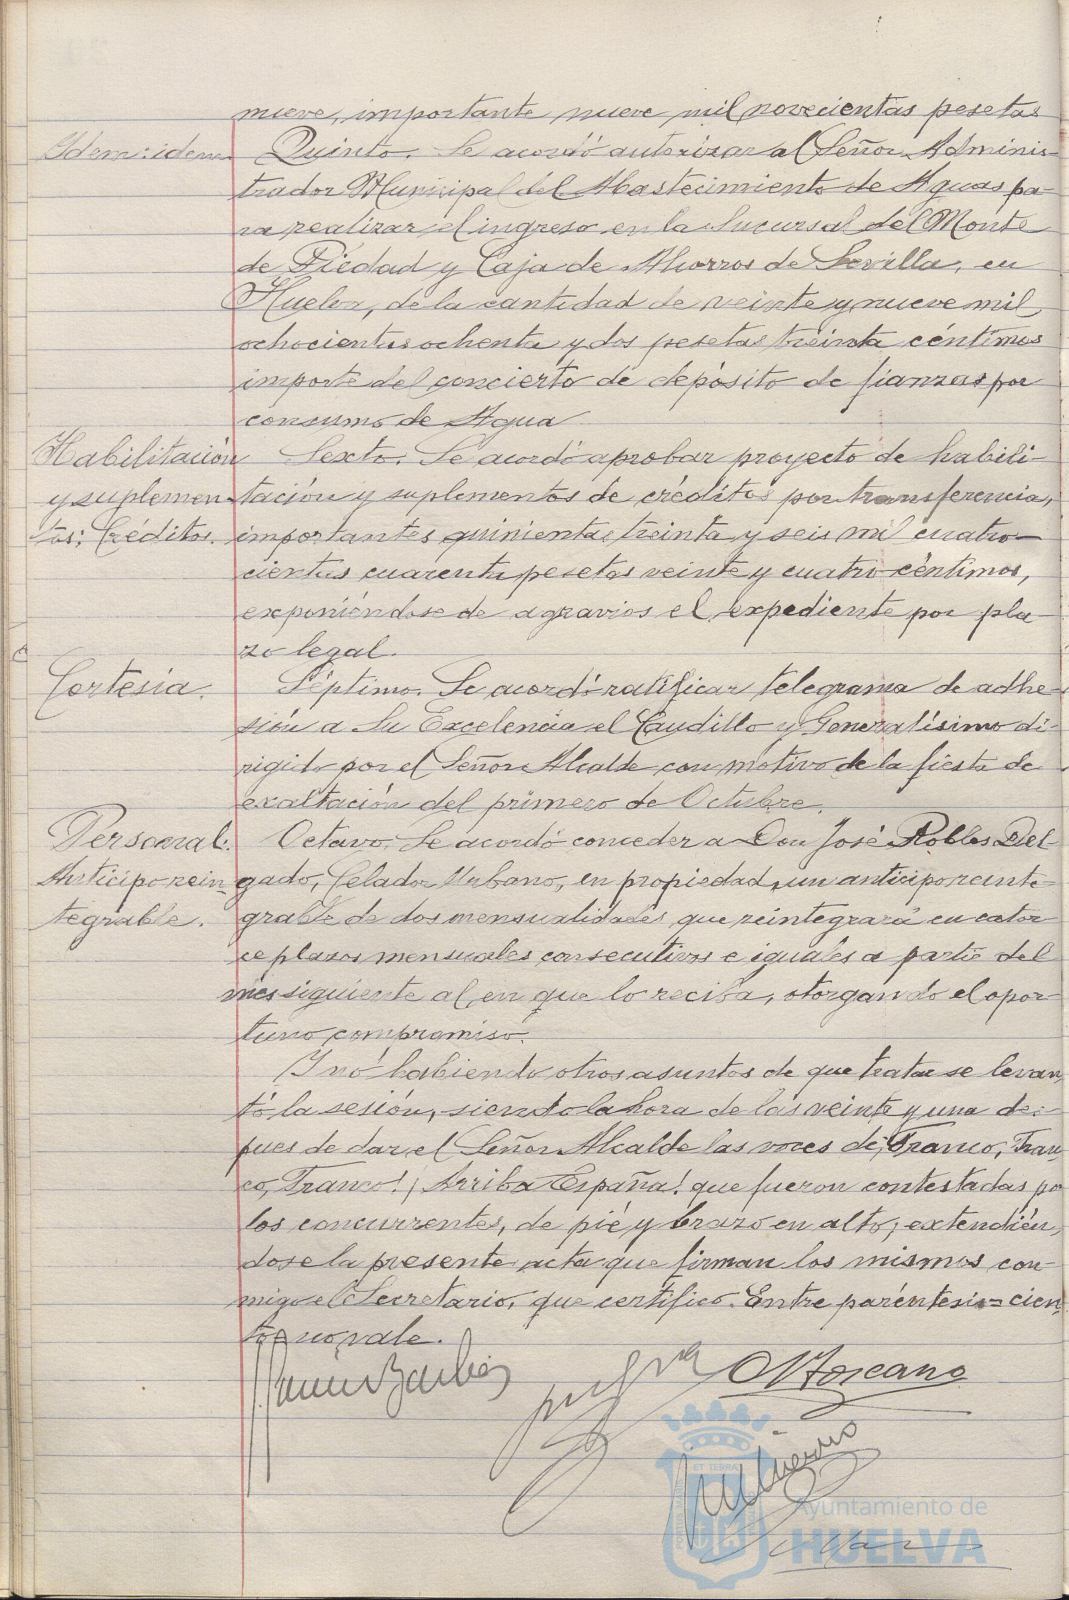 nueve, importante nueve mil novecientas pesetas
Idem: idem. Quinto. Se acordó autorizar al Señor Adminis-
trador Municipal del Abastecimiento de Aguas pa-
ra realizar el ingreso en la Sucursal del Monte
de Piedad y Caja de Ahorros de Sevilla, en
Huelva, de la cantidad de veinte y nueve mil
ochocientas ochenta y dos pesetas treinta céntimos
importe del concierto de depósito de fianzas por
consumo de Agua
Habilitación Sexto. Se acordó aprobar proyecto de habili-
y suplemen- tación y suplementos de créditos por transferencia,
tos: Créditos. importantes quinientas treinta y seis mil cuatro-
cientas cuarenta pesetas veinte y cuatro céntimos,
exponiéndose de agravios el expediente por pla-
zo legal.
Cortesía. Séptimo. Se acordó ratificar telegrama de adhe-
sión a Su Excelencia el Caudillo y Generalísimo di-
rigido por el Señor Alcalde con motivo de la fiesta de
exaltación del primero de Octubre.
Personal. Octavo. Se acordó conceder a Don José Robles Del-
Anticipo rein- gado, Celador Urbano, en propiedad, un anticipo reinte-
tegrable. grable de dos mensualidades que reintegrará en cator-
ce plazos mensuales consecutivos e iguales a partir del
mes siguiente al en que lo reciba, otorgando el opor-
tuno compromiso.
Y nó habiendo otros asuntos de que tratar se levan-
tó la sesión, siendo la hora de las veinte y una des-
pues de dar el Señor Alcalde las voces de ¡Franco, Fran-
co, Franco! ¡Arriba España! que fueron contestadas po
los concurrentes, de pié y brazo en alto; extendién-
dose la presente acta que firman los mismos con-
migo el Secretario, que certifico. Entre paréntesis = cien-
to = no vale.
OToscano
ET TERRAE
Ayuntamiento de
HUELVA